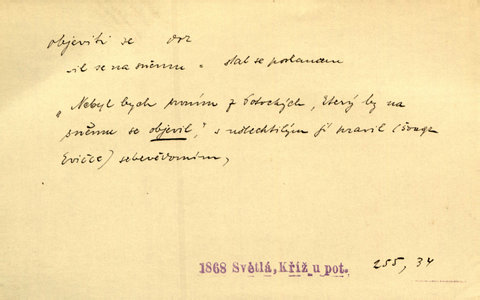 objeviti se dok
-il se na sněmu = stal se poslancem
„Nebyl bych prvním z Potockých, který by na
sněmu se objevil," s ušlechtilým jí pravil
sebevědomím,
1868 Světlá, Kříž u pot. 255, 34